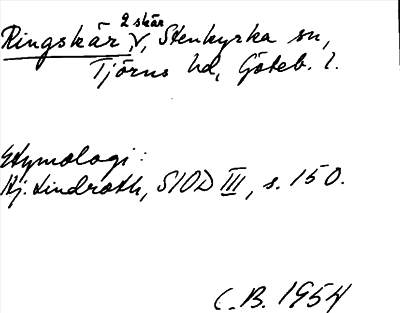 2 skär
Ringskär V, Stenkyrka sn,
Tjörns hd, Göteb. l.
Etymologi:
Hj. Lindroth, SIOD III, s. 150.
C.B. 1954